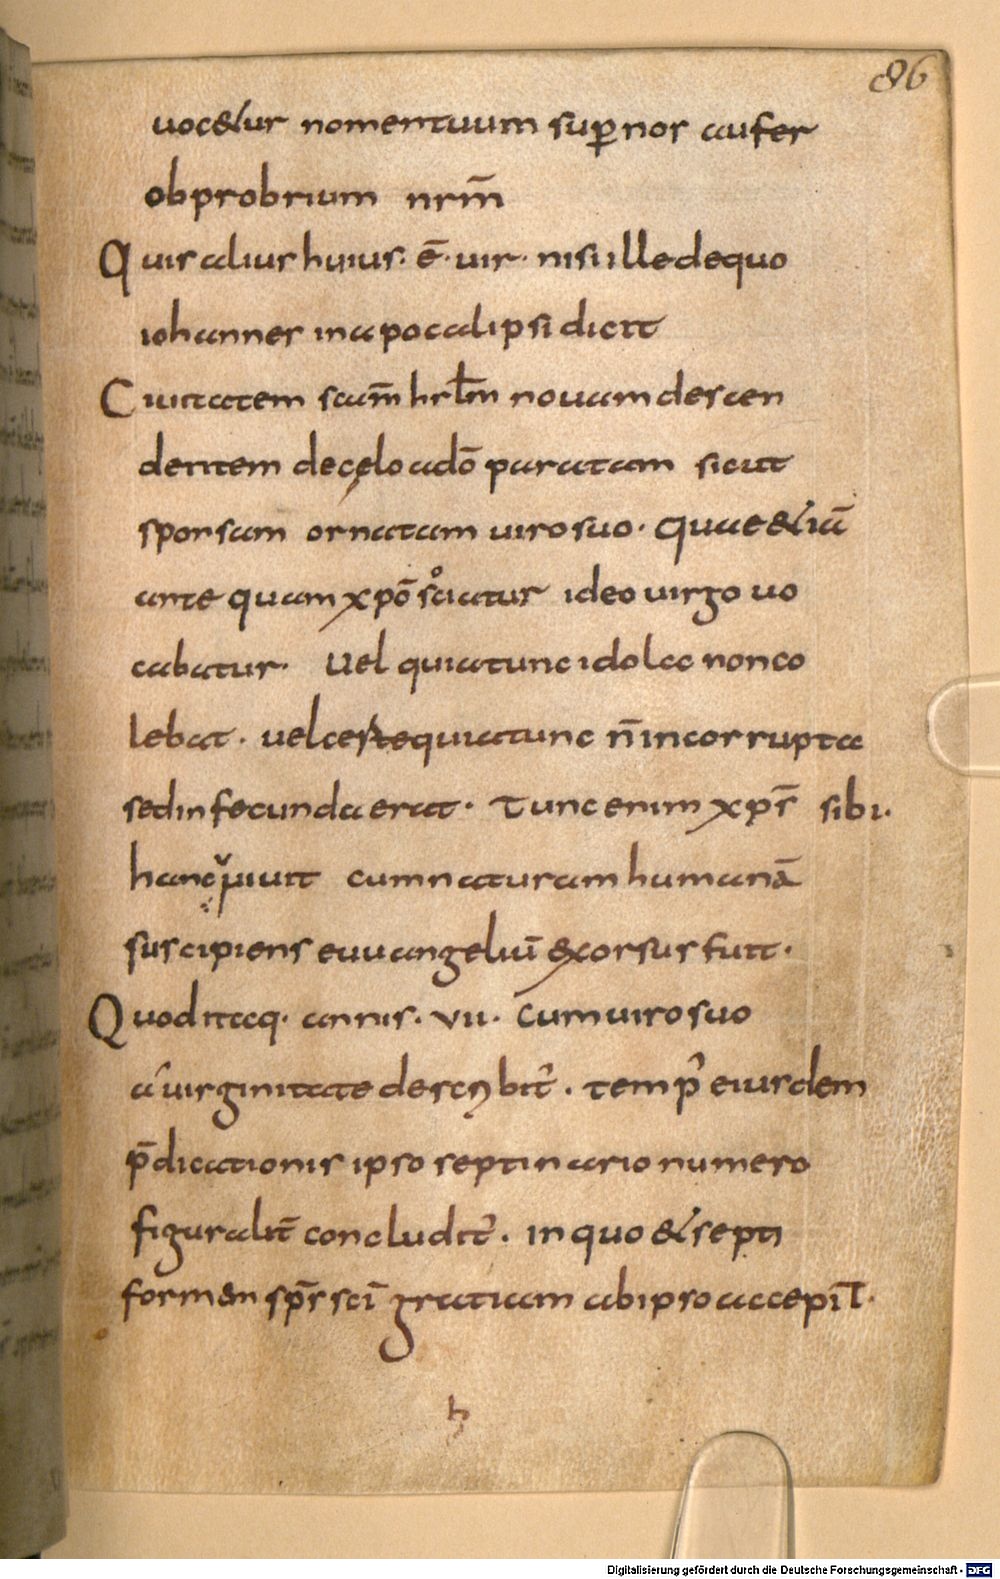 86
uocetur nomen tuum sup̄ nos aufer
obprobrium nr̄m
Quis alius huius· ē· uir· nisi ille de quo
iohannes in apocalipsi dicit
Ciuitatem scām hrłm nouam descen
dentem de cęlo a dō paratam sicut
sponsam ornatam uiro suo· Quae etiā
ante quam xpō sociatur ideo uirgo uo
cabatur· Uel quia tunc idola non co
lebat· uel certe quia tunc n̄ incorrupta
sed infecunda erat· Tunc enim xps̄ sibi·
hanc qͥuiuit cum naturam humanā
suscipiens euuangeliū exorsus fuit·
Quod itaq· annis· vii· cum uiro suo
a uirginitate describit᷒· temp᷒ eiusdem
p̄dicationis ipso septinario numero
figuralit̄ concludit᷒· in quo et septi
formem sp̄s scī gratiam ab ipso accepit·
h
Digitalisierung gefördert durch die Deutsche Forschungsgemeinschaft - DFG